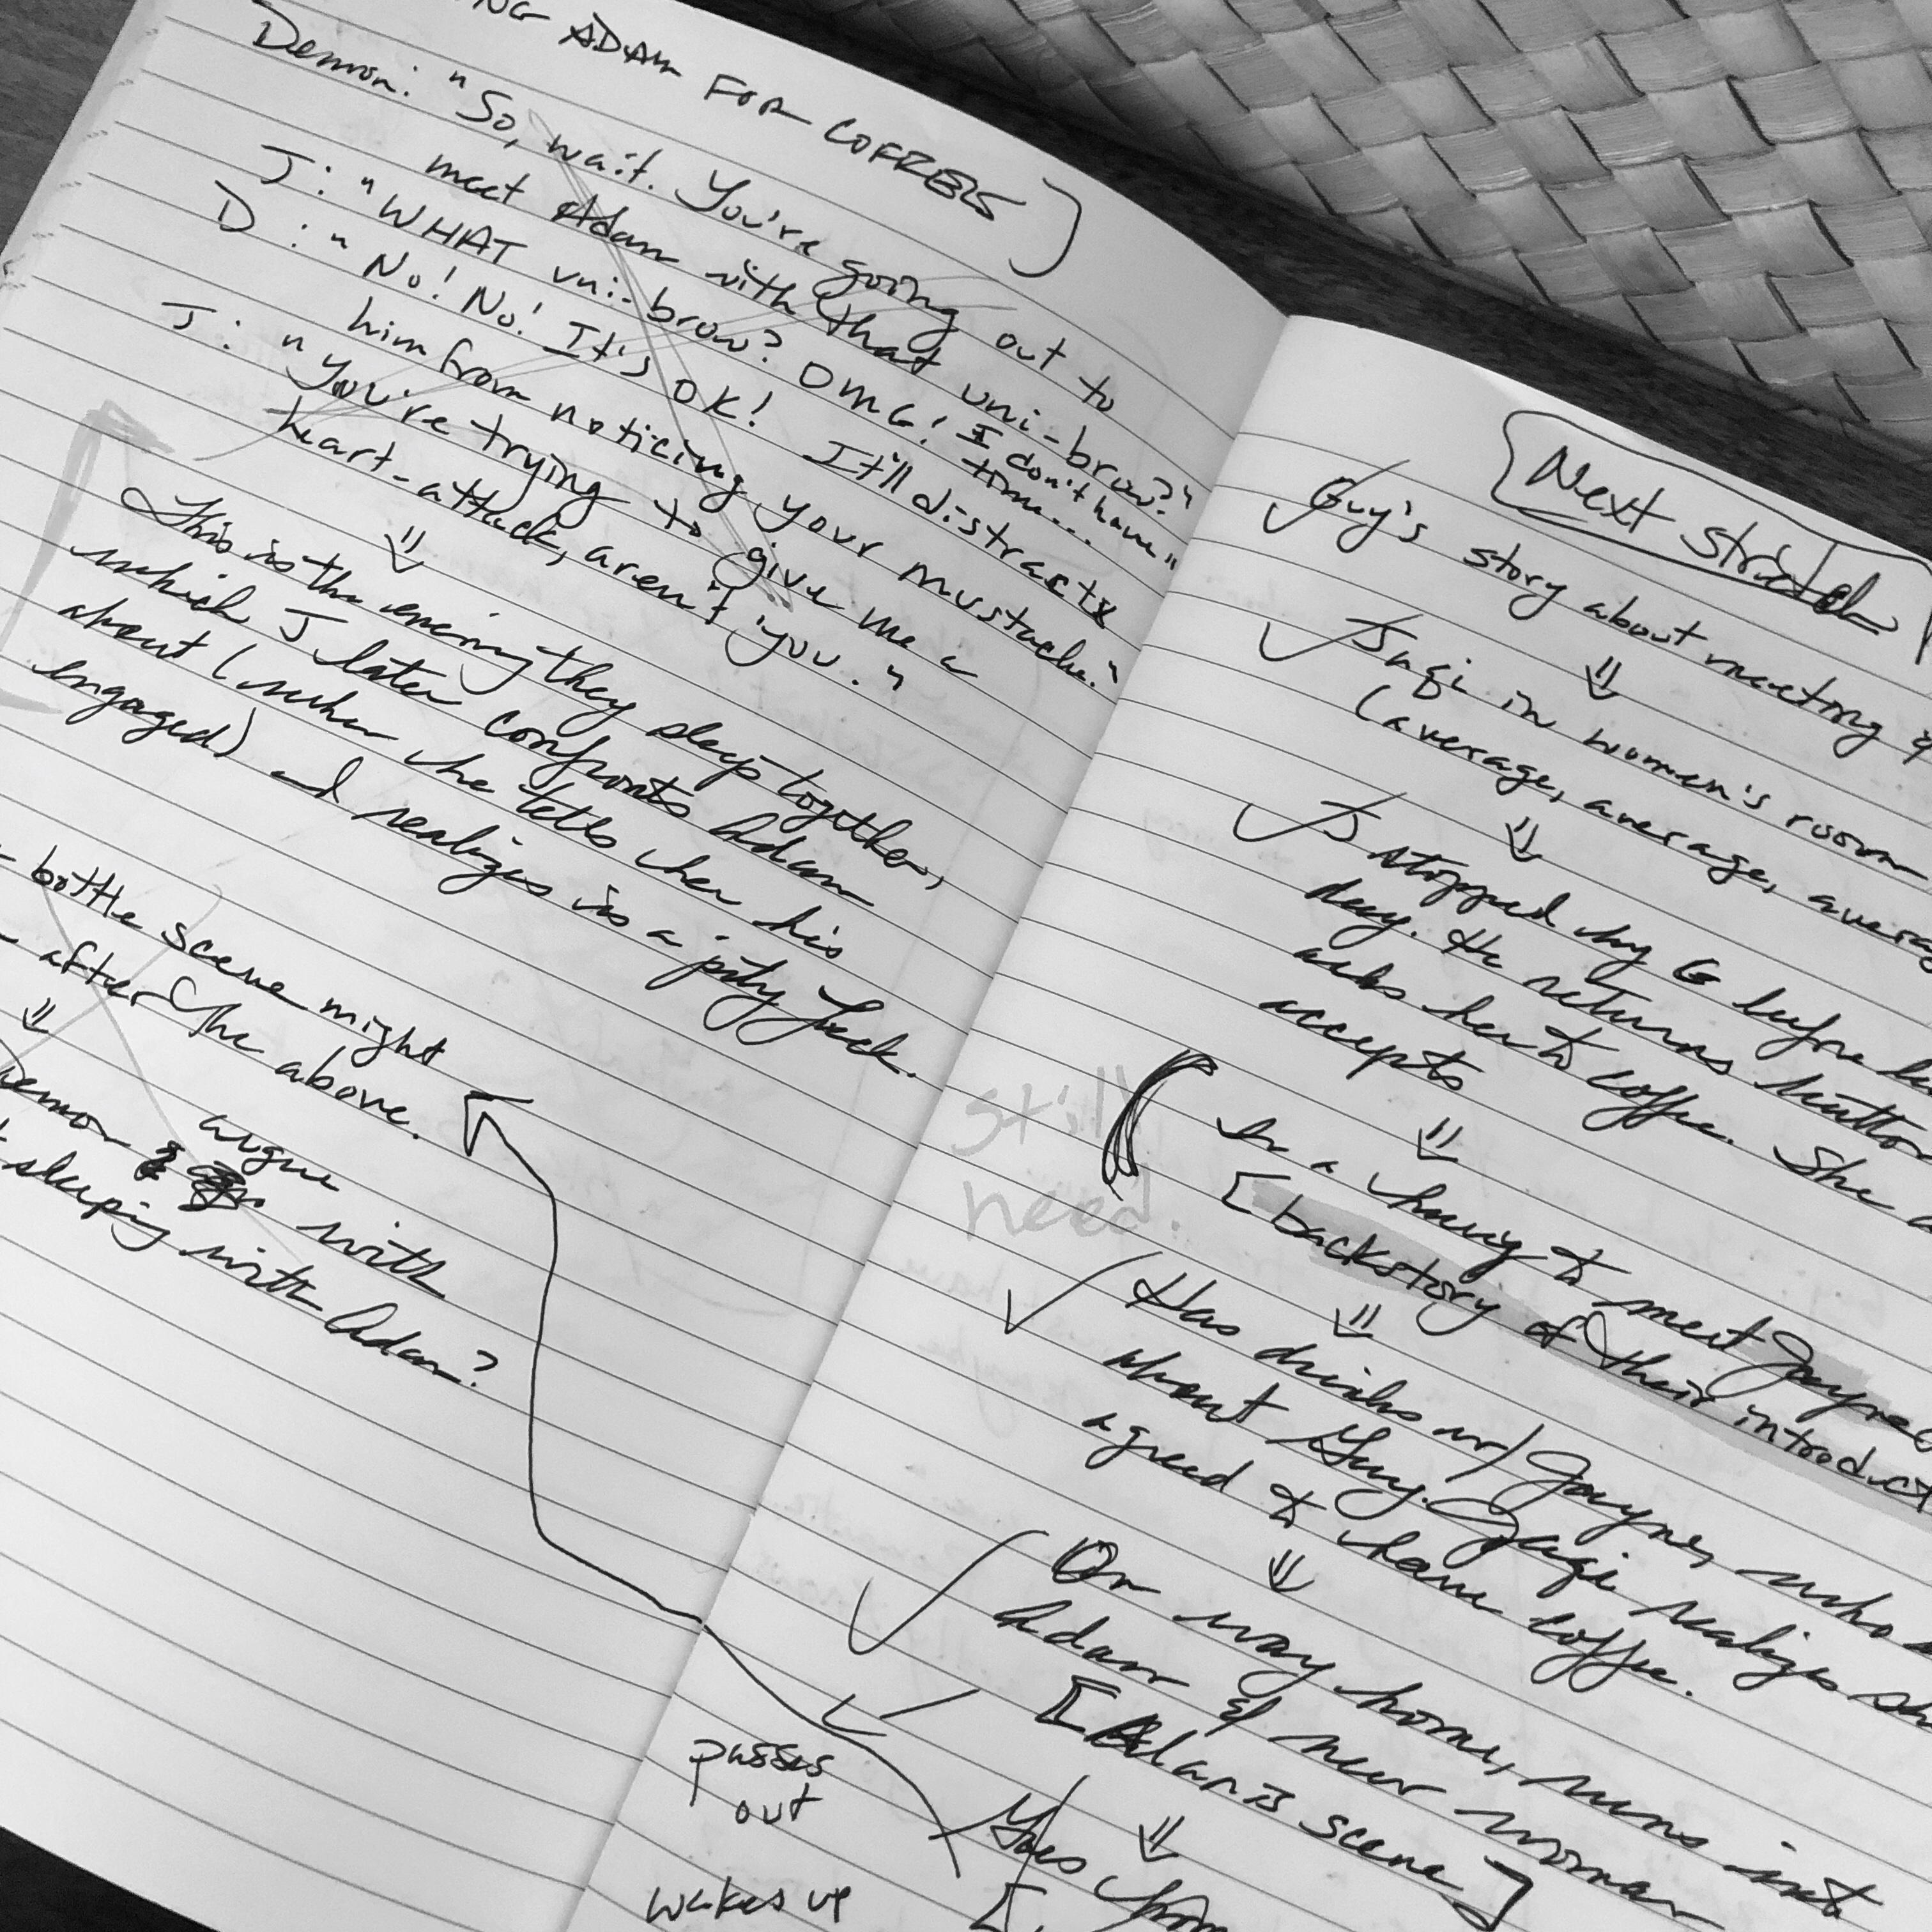 NG ADAM FOR COFFEE]
Demon: "So, wait. You're going out to
meet Adam with that uni-brow?"
J: "WHAT uni-brow? OMG! I don't have
time..."
D: "No! No! It's OK! It'll distract
him from noticing your mustache."
J: "You're trying to give me a
heart-attack, aren't you."
This is the evening they sleep together,
which J later confronts Adam
about (when he tells her his
engaged) and realizes is a pity fuck.
bottle scene might
after the above.
Demon & argue with
sleeping with Adam?
Next stretch
Guy's story about meeting &
Jugi in women's room
(average, average, averag
J stopped by G before
day. He returns button
asks her to coffee. She
accepts
Still
need.
In a hurry to meet Jayne
[backstory of their introduct
Has drinks w/ Jayne, who
about Guy. Jugi realizes sh
agreed to have coffee.
On way home, runs int
Adam & new woman
[Adam's scene]
passes
out
Goes hom
wakes up